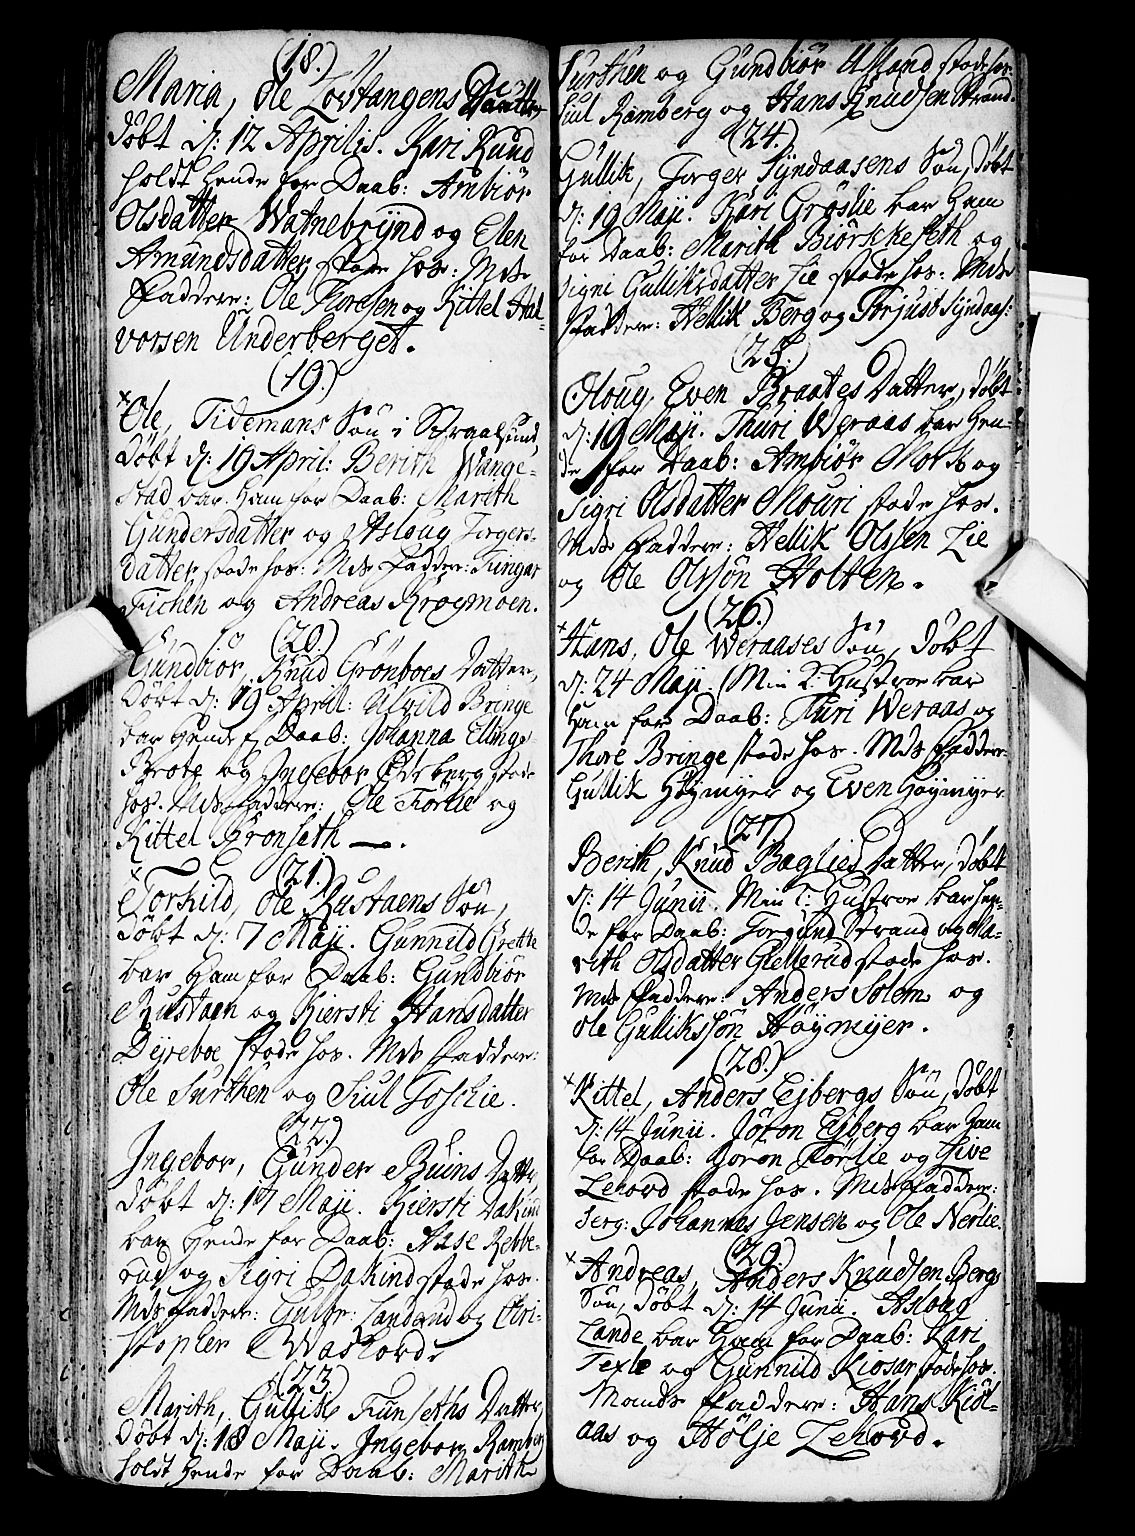 (18.)
Maria, Ole Lovtangens Datter
døbt d: 12 Aprilis. Kari Ruud
holdt hende for Daab: Ambiør
Olsdatter Watnebrÿnd og Elen
Amundsdatter stode hos: Mds
Faddere: Ole Toresen og Kittel Hal-
vorsen Underberget.
(19.)
Ole, Tidemans Søn i Straalsund,
døbt d: 19 April: Berith Wange-
stad bar ham for Daab: Marith
Gundersdatter og Asloug Torgers-
datter stode hos: Mds Faddere: Gungar
Tichen og Andreas Krogmoen.
(20.)
Gundbiør, Knud Grønboes Datter,
døbt d: 19 April: Ulvild Bringe
bar hende f Daab: Johanna Ellings
Brote og Ingebor Edsberg stode
hos. Mds Faddere: Ole Førlie og
Kittel Fronseth.
(21.)
Torkild, Ole Rustaens Søn,
døbt d: 7 Maji. Gunnild Grette
bar ham for Daab: Gundbiør
Rustaen og Kiersti Hansdatter
Dÿreboe stode hos. Mds Faddere:
Ole Surthen og Siul Foslie.
(22.)
Ingebor, Gunder Buins Datter,
døbt d: 17 Maji. Kiersti Dakind
bar hende for Daab: Aase Rebbe-
rud og Sigri Dakind stode hos.
Mds Faddere: Gulbr: Landand og Chri-
stopher Waskord.
(23)
Marith, Gullik Funseths Datter,
døbt d: 18 Maji. Ingebor Ramberg
holdt hende for Daab: Marith
Surthen og Gundbiør Ulland stode hos.
Siul Ramberg og Hans Knudsen Strand.
(24.)
Gullik, Torger Sÿndaasens Søn, døbt
d: 19 Maji. Kari Grøslie bar ham
for Daab: Marith Biørckeseth og
Signi Gulliksdatter Lie stode hos: Mds
Faddere: Hellik Berg og Torjus Sÿndaas:
(25.)
Oloug, Even Braates Datter, døbt
d: 19 Maji. Thuri Weraas bar hen-
de for Daab: Ambiør Mork og
Sigri Olsdatter Mouri stode hos.
Mds Faddere: Hellik Olssen Lie
og Ole Olssøn Holten.
(26.)
Hans, Ole Weraases Søn, døbt
d: 24 Maji. (Min S: Hustroe bar
ham for Daab: Thuri Weraas og
Thore Bringe stode hos. Mds Faddere
Gullik Høymyer og Even Høymyer
(27.)
Berith, Knud Baglies Datter, døbt
d: 14 Junii. Min S: Hustroe bar hen-
de for Daab: Torgund Strand og Ma-
rith Olsdatter Giellerud stode hos.
Mds Faddere: Anders Solem og
Ole Gullikssøn Høymyer.
(28.)
Kittel, Anders Ejbergs Søn, døbt
d: 14 Junii. Jøron Ejberg bar ham
for Daab: Joron Førlie og Give
Lehovd stode hos. Mds Faddere:
Serg: Johannes Jensen og Ole Nerlie.
(29.)
Andreas, Anders Knudsen Bergs
Søn, døbt d: 14 Junii. Asloug
Lande bar ham for Daab: Kari
Texle og Gunnild Kiosar stode hos.
Mands Faddere: Hans Kiøl-
aas og Hølje Lehovd.